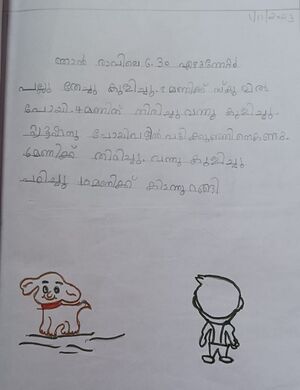 1/11/2023
ഞാൻ രാവിലെ 6.30 എഴുന്നേറ്റ്
പല്ലു തേച്ചു കുളിച്ചു. മണിക്ക് സ്കൂളിൽ
പോയി. 4 മണിക്ക് തിരിച്ചു വന്നു കുളിച്ചു.
പോയി
6 മണിക്ക് തിരിച്ചു. വന്നു കുളിച്ചു
പഠിച്ചു 10 മണിക്ക് കിടന്നുറങ്ങി